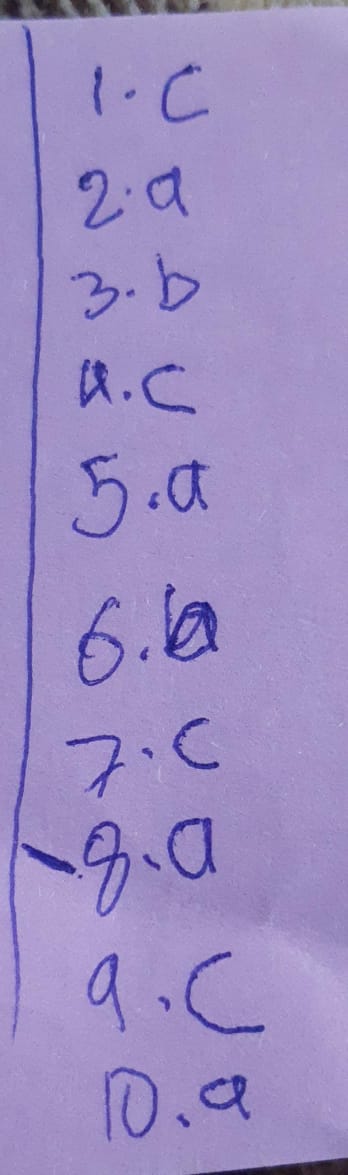 1. c
2. a
3. b
4. c
5. a
6.
7. c
8. a
9. c
10. a